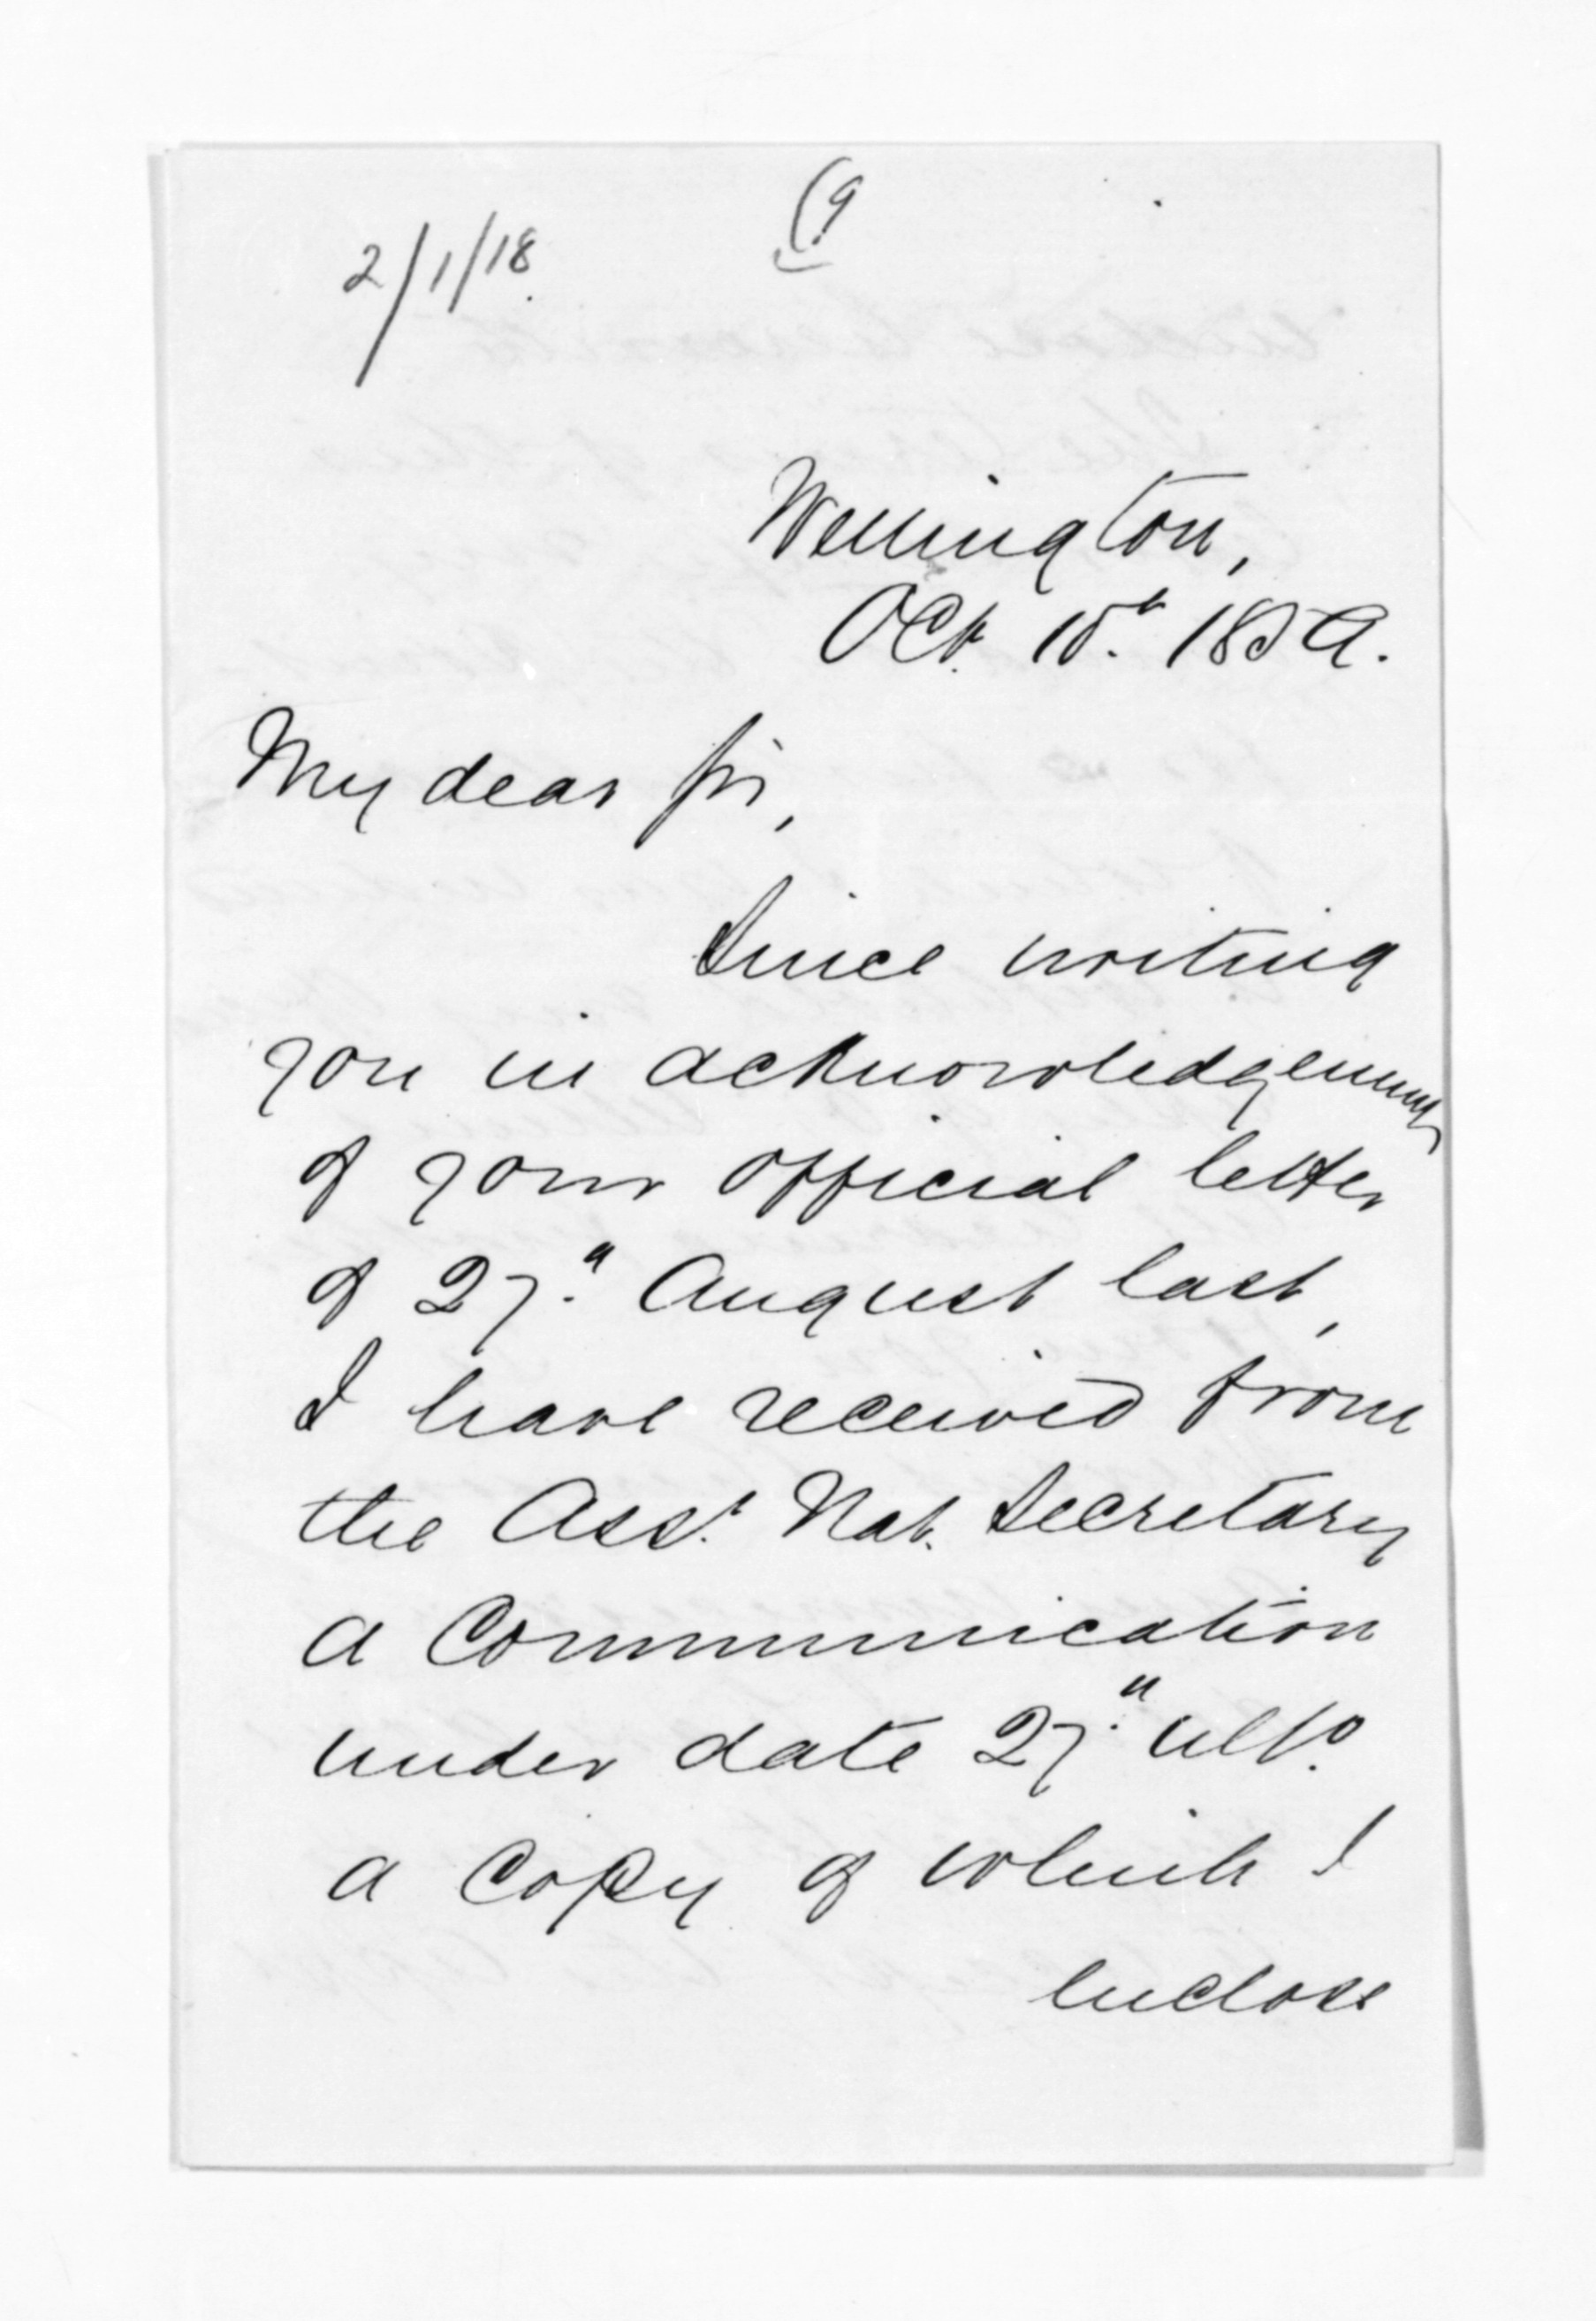 2/1/18.
Wellington,
Oct. 15th 1859.
My dear Sir,
Since writing
you in acknowledgement
of your official letter
of 27th August last,
I have received from
the Asst. Nat. Secretary
a Communication
under date 27th ulto.
a Copy of which I
enclose